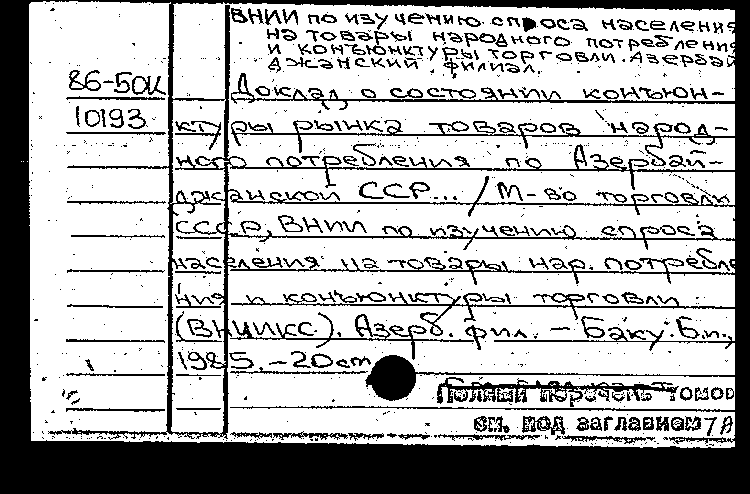 ВНИИ по изучению спроса населения
на товары народного потребления
и конъюнктуры торговли. Азербай
джанский филиал.
86-5ОК
10193
Доклад о состоянии конъюн-
ктуры рынка товаров народ-
ного потребления по Азербай-
джанской ССР... / М-во торговли
СССР, ВНИИ по изучению спроса
населения на товары нар. потребле
ния и конъюнктуры торговли
(ВНИИКС). Азерб. фил. – Баку: Б.и.,
1985. – 20 см
Полный перечень томов
см. под заглавием